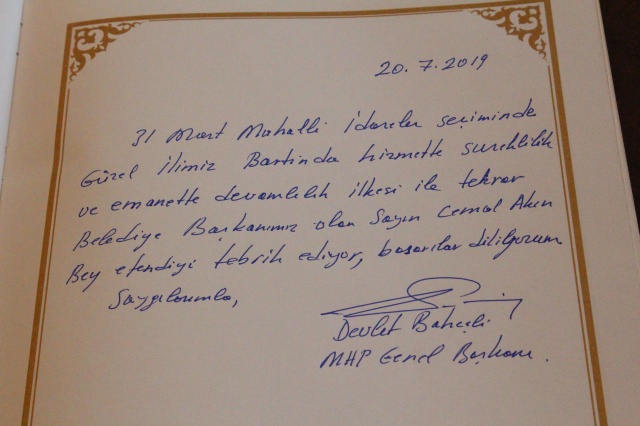 20.7.2019
31 Mart Mahalli İdareler seçiminde
Güzel İlimiz Bartında hizmette sureklilik
ve emanette devamlılık ilkesi ile tekrar
Belediye Başkanımız olan Sayın Cemal Akın
Bey efendiyi tebrik ediyor, başarılar diliyorum
Saygılarımla,
Devlet Bahçeli
MHP Genel Başkanı.